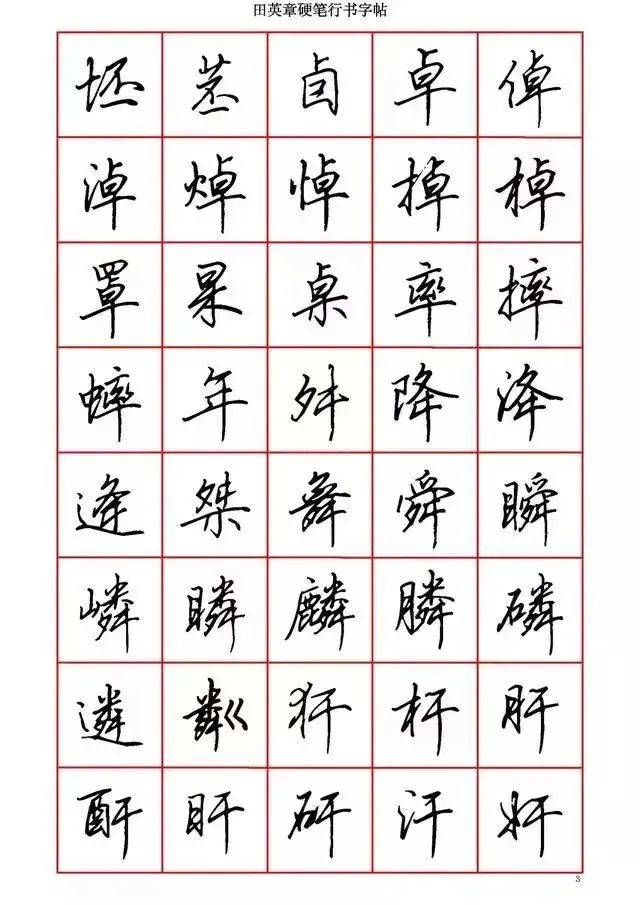 田英章硬笔行书字帖
坯 苤 卣 卓 倬
淖 焯 悼 掉 棹
罩 杲 桌 率 摔
蟀 年 舛 降 洚
逄 桀 舞 舜 瞬
嶙 瞵 麟 膦 磷
遴 粼 犴 杆 肝
酐 旰 矸 汗 奸
3